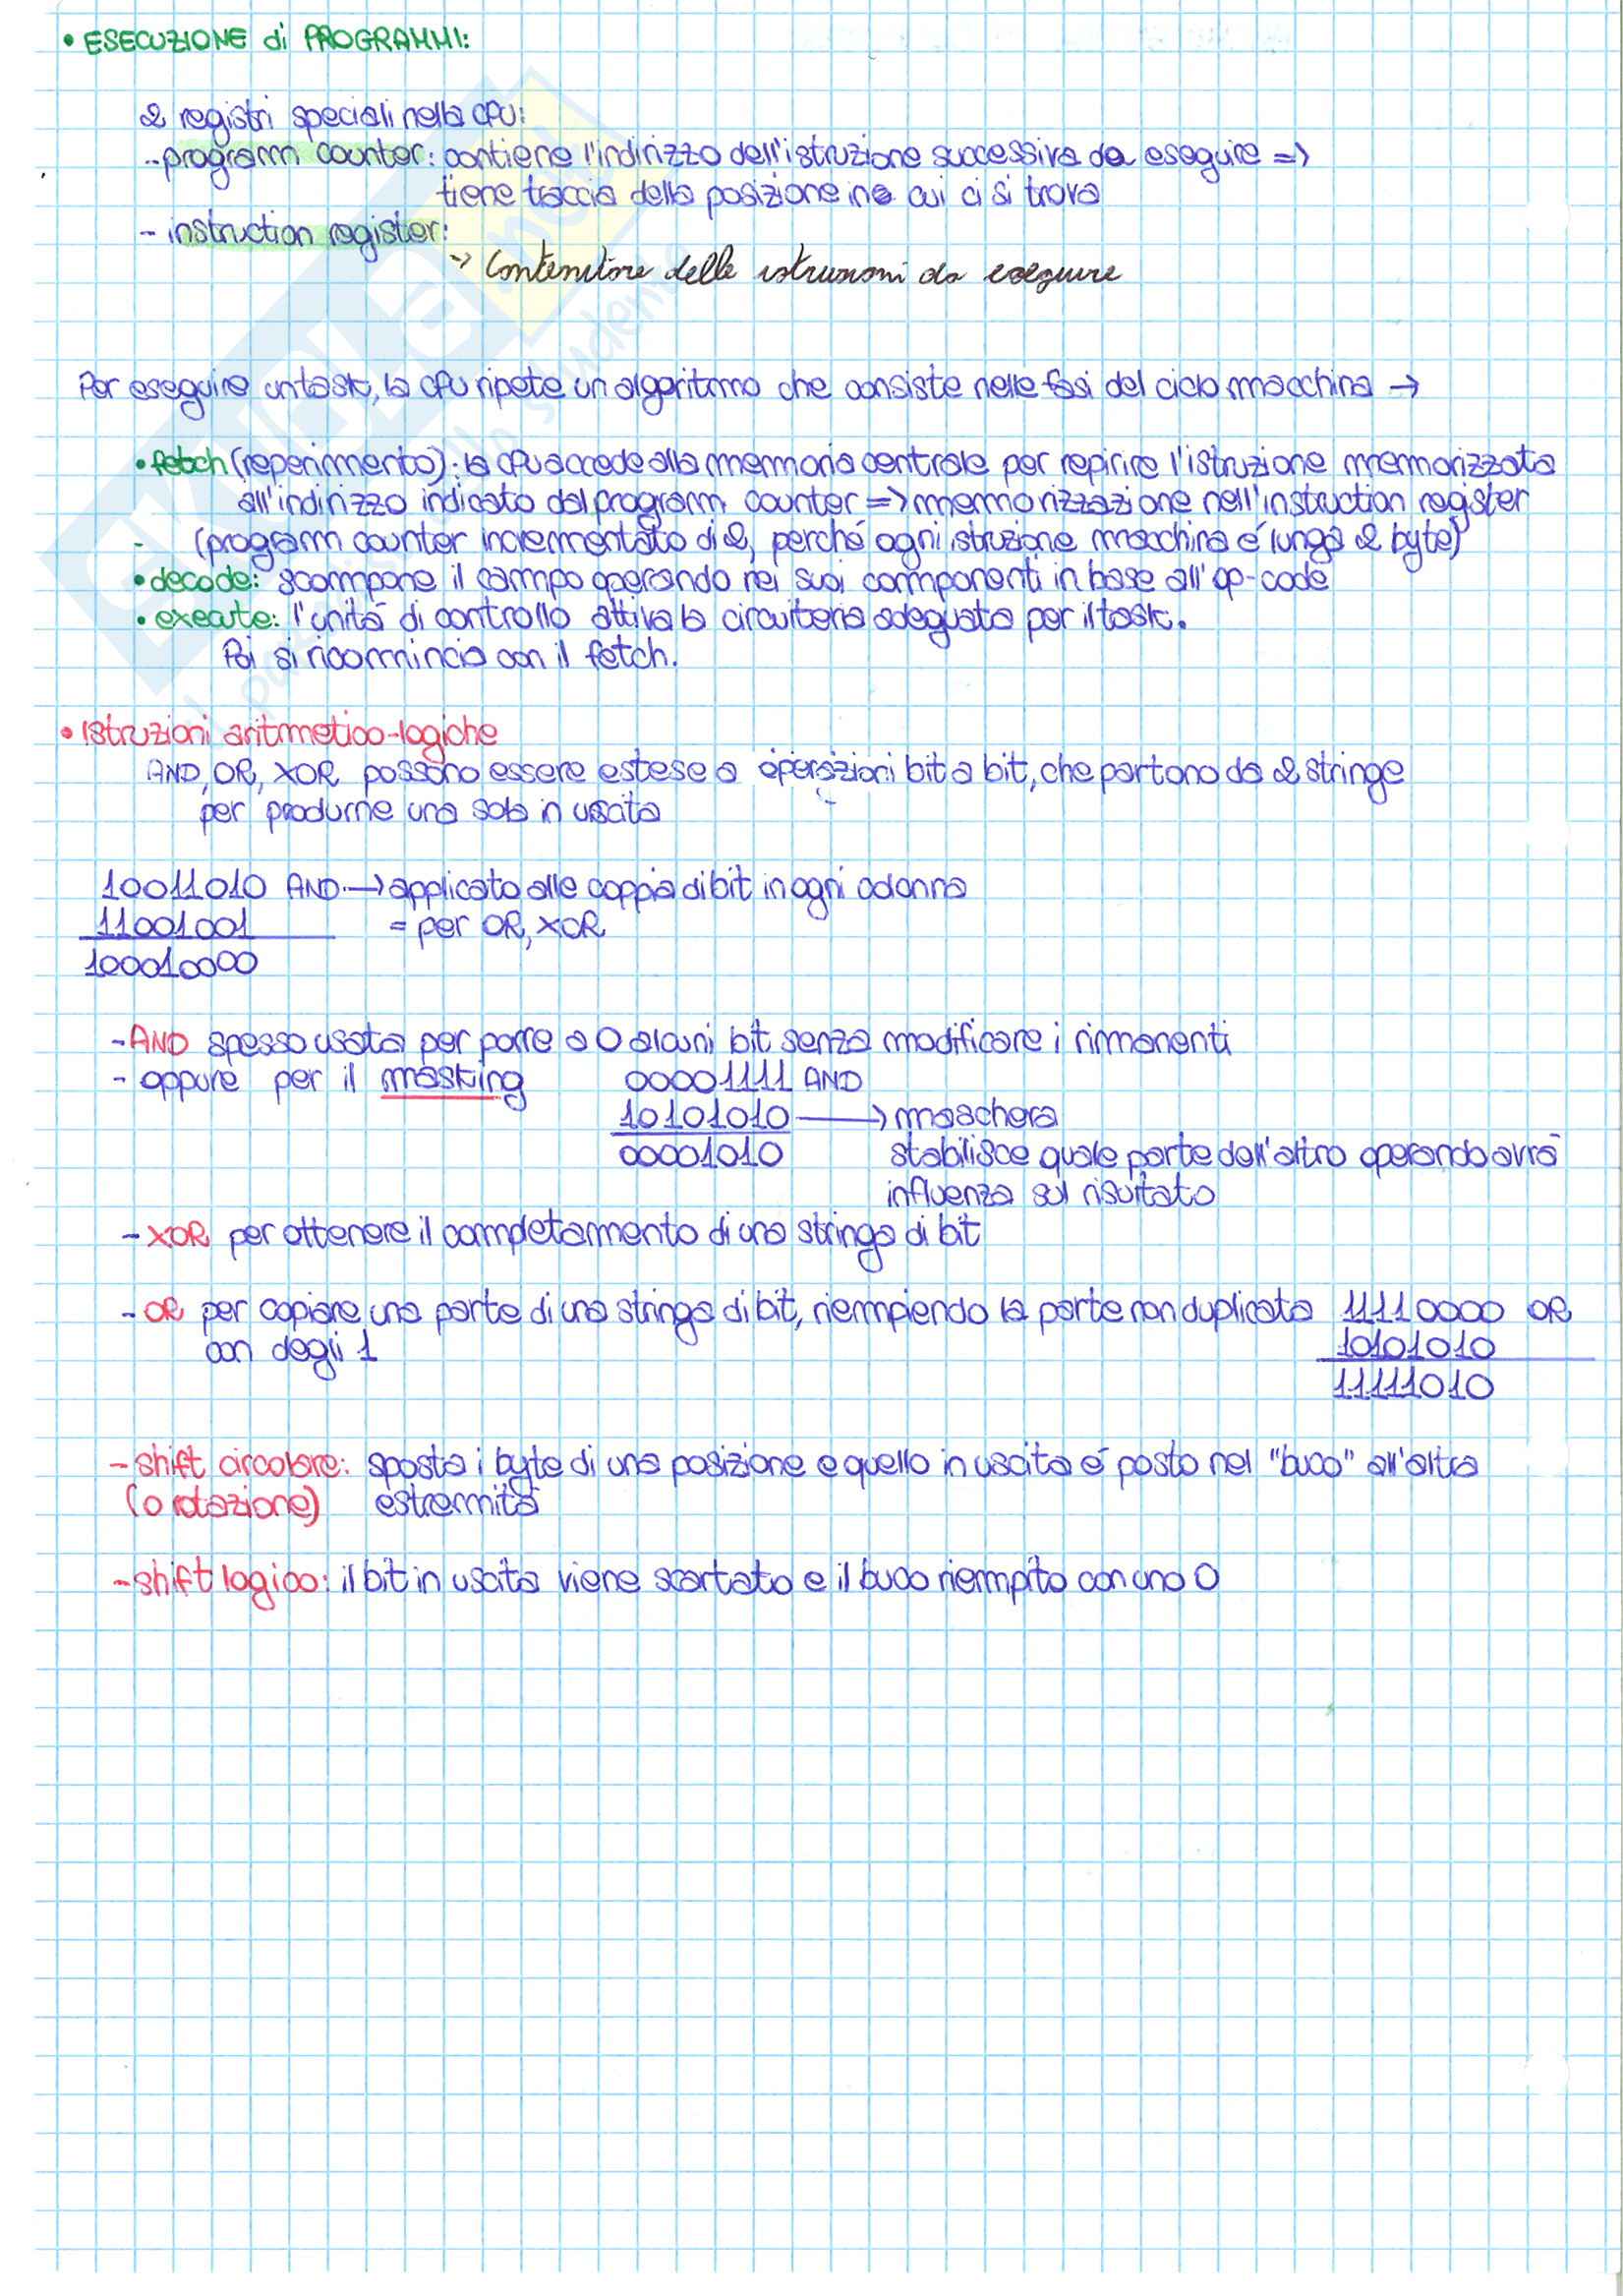 • ESECUZIONE di PROGRAMMI:
2 registri speciali nella CPU:
- program counter: contiene l'indirizzo dell'istruzione successiva da eseguire =>
tiene traccia della posizione in cui ci si trova
- instruction register:
→ Contenitore delle istruzioni da eseguire
Per eseguire un task, la CPU ripete un algoritmo che consiste nelle fasi del ciclo macchina →
• fetch (reperimento): la CPU accede alla memoria centrale per repirire l'istruzione memorizzata
all'indirizzo indicato dal program counter => memorizzazione nell'instruction register
- (program counter incrementato di 2, perché ogni istruzione macchina é lunga 2 byte)
• decode: scompone il campo operando nei suoi componenti in base all'op-code
• execute: l'unitá di controllo attiva la circuiteria adeguata per il task.
Poi si ricomincia con il fetch.
• Istruzioni aritmetico-logiche
AND, OR, XOR possono essere estese a operazioni bit a bit, che partono da 2 stringe
per produrne una sola in uscita
10011010 AND → applicato alle coppia di bit in ogni colonna
11001001 = per OR, XOR
100010000
- AND spesso usata per porre a 0 alcuni bit senza modificare i rimanenti
- oppure per il masking 00001111 AND
10101010 → maschera
00001010 stabilisce quale parte dell'altro operando avrà
influenza sul risultato
- XOR per ottenere il completamento di una stringa di bit
- OR per copiare una parte di una stringa di bit, riempiendo la parte non duplicata 11110000 OR
con degli 1 10101010
11111010
- shift circolare: sposta i byte di una posizione e quello in uscita é posto nel "buco" all'altra
(o rotazione) estremitá
- shift logico: il bit in uscita viene scartato e il buco riempito con uno 0